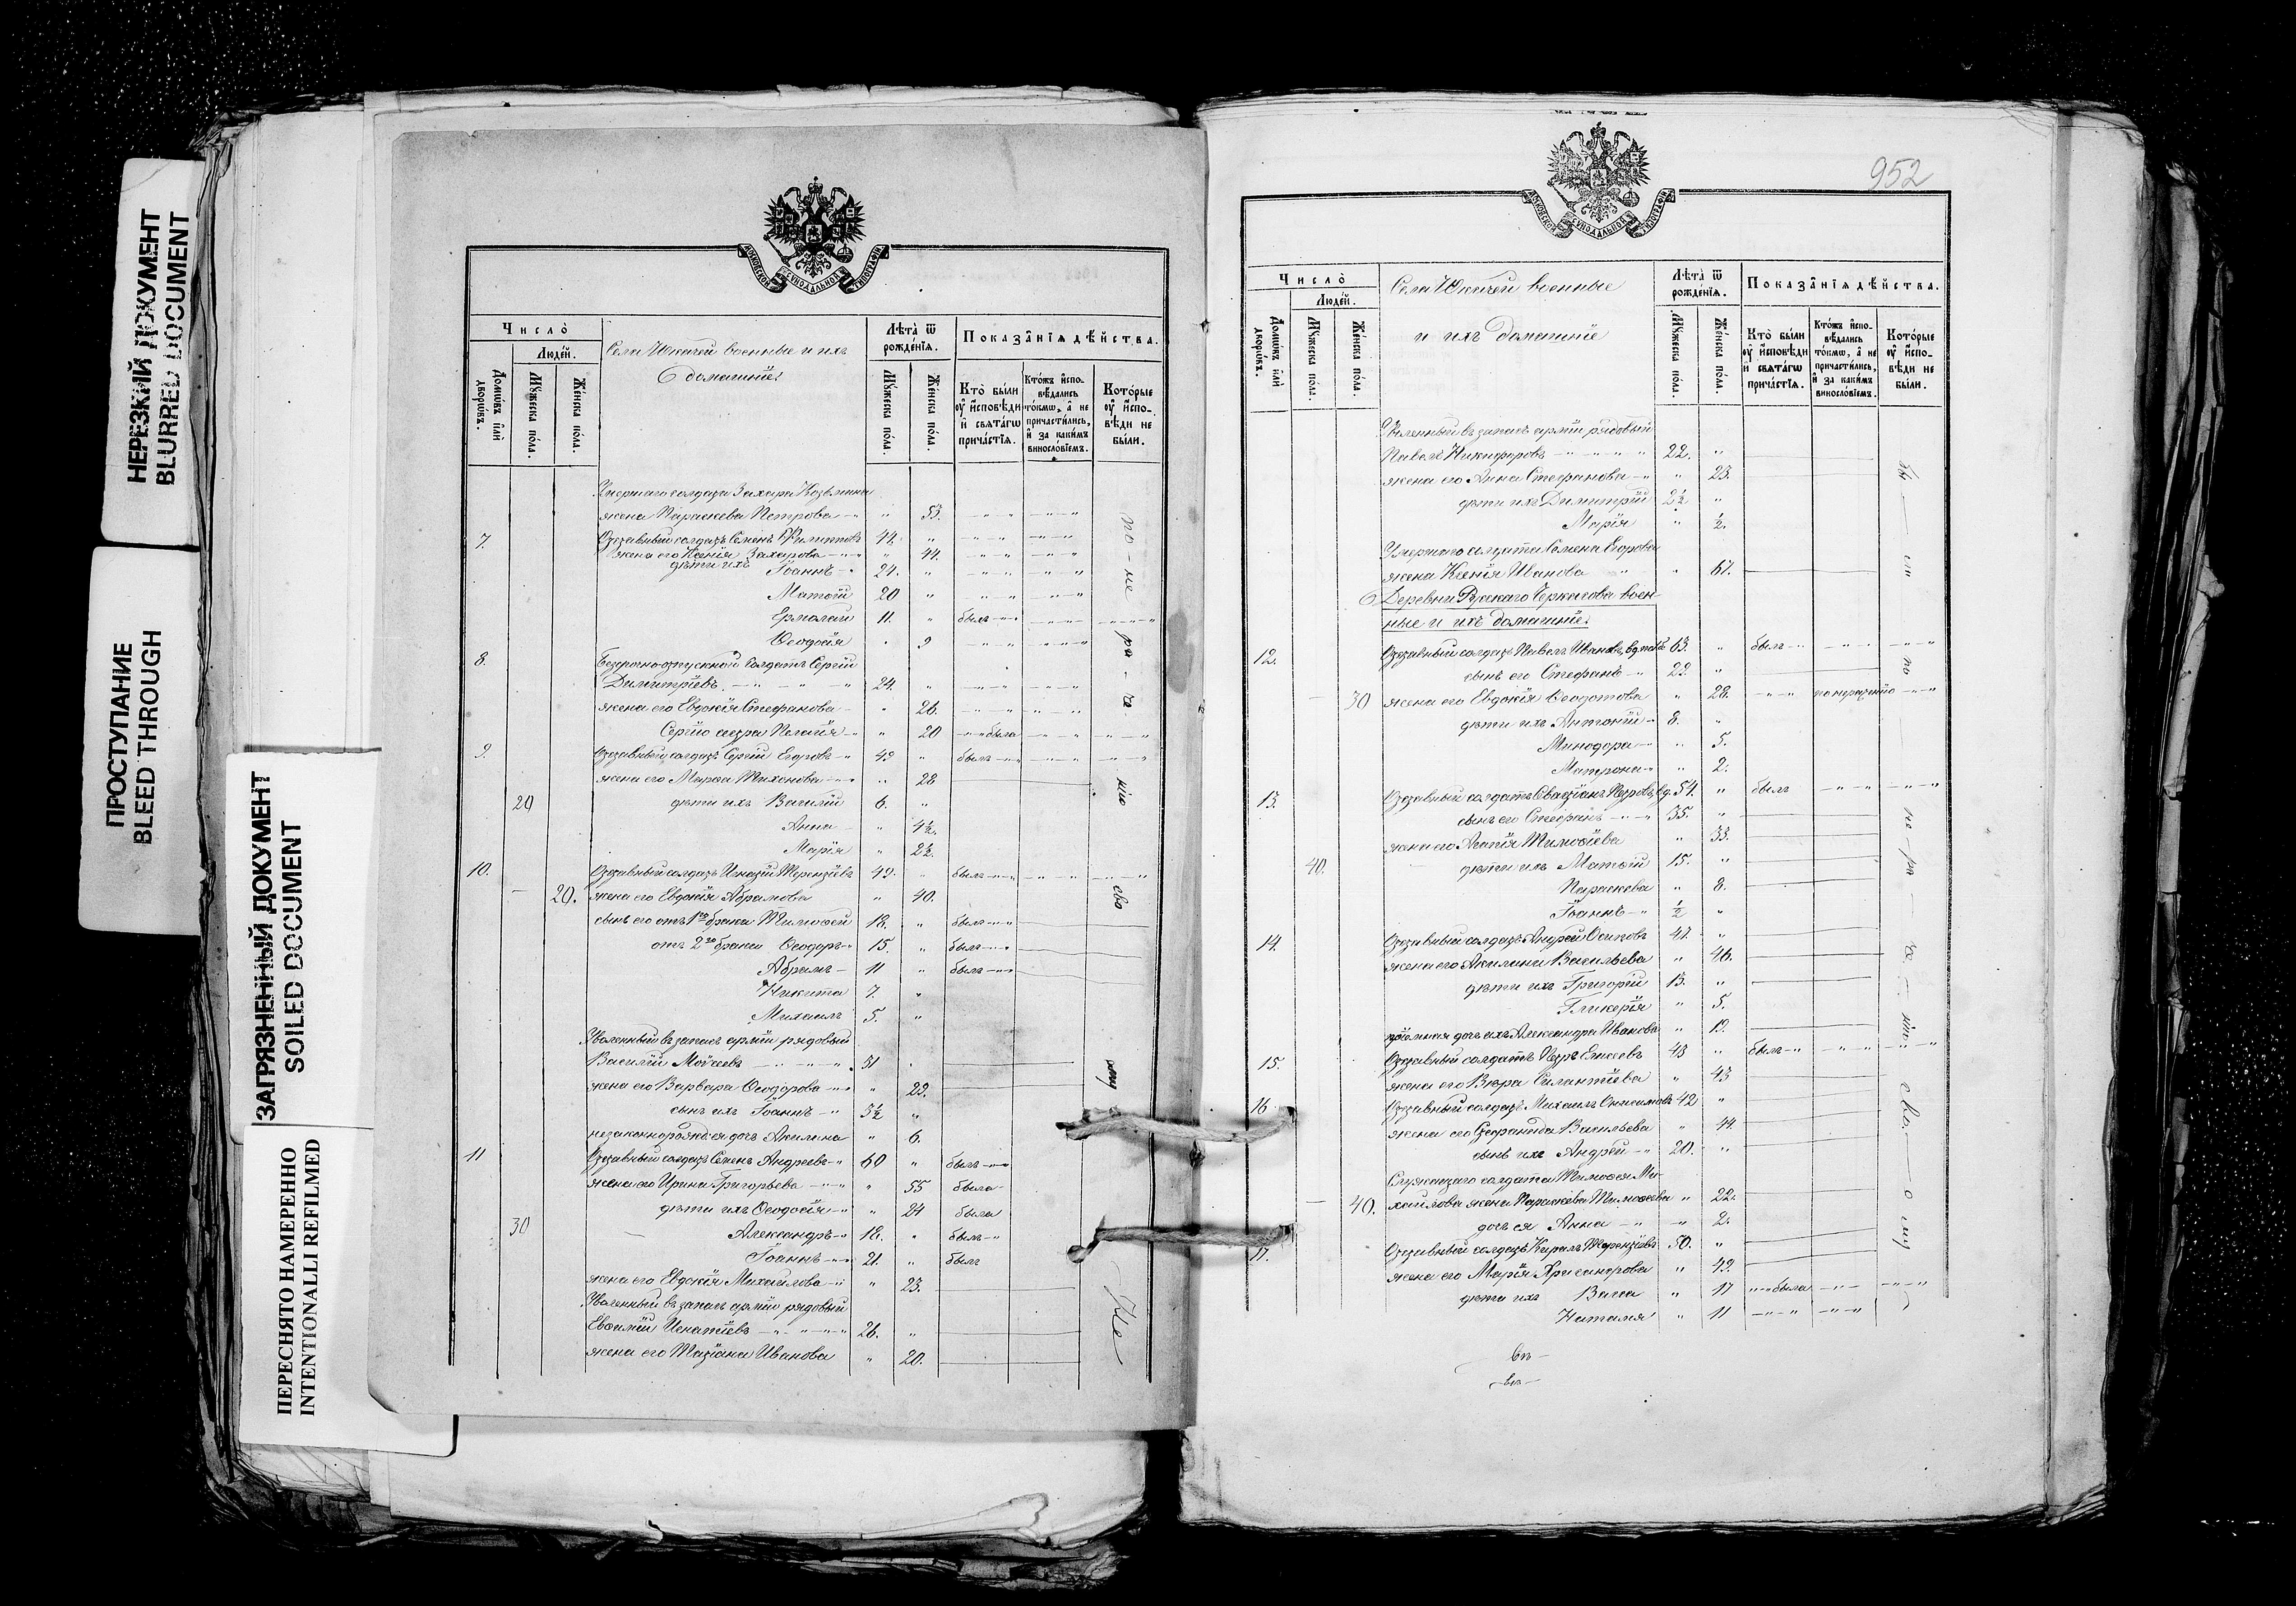 НЕРЕЗКИЙ ДОКУМЕНТ
BLURRED DOCUMENT
ПРОСТУПАНИЕ
BLEED THROUGH
ЗАГРЯЗНЕННЫЙ ДОКУМЕНТ
SOILED DOCUMENT
ПЕРЕСНЯТО НАМЕРЕННО
INTENTIONALLI REFILMED
МОСКОВСКОЙ СѴНОДАЛЬНОЙ ТИПОГРАФІИ
Число̀
Людей.
Домѡвъ и҆лѝ дворѡвъ.
Мꙋжеска по́ла.
Же́нска по́ла.
Села Юкачей военные и ихъ
домашніе
Лѣта̀ ѿ рожде́нїѧ.
Мꙋжеска по́ла.
Же́нска по́ла.
Показанїѧ дѣйства.
Кто̀ были ᲂу҆ и҆сповѣди и҆ свѧта́гѡ прича́стїѧ.
Кто́жъ и҆спо-вѣдались то́кмѡ, а҆ не причасти́лись, и҆ за каки́мъ винословїемъ.
Кото́рые ᲂу҆ и҆спо-вѣди не были.
Умершаго солдата Захара Козьмина
жена Параскева Петрова " 53.
7. Отставный солдатъ Семенъ Филиповъ 44. "
жена его Ксенія Захарова " 44.
дѣти ихъ Іоаннъ 24. "
Матѳій 20 "
Ермолай 11. " былъ
Ѳеодосія " 9
8. Безсрочно-отпускной солдатъ Сергій
Димитріевъ 24. "
жена его Евдокія Стефанова " 26.
Сергію сестра Пелагія " 20 была
9. Отставный солдатъ Сергій Егоровъ 49 " былъ
жена его Марѳа Тихонова " 28
20 дѣти ихъ Василій 6. "
Анна " 4½.
Марія " 2½.
10. Отставный солдатъ Игнатій Терентіевъ 49. " былъ
20. жена его Евдокія Абрамова " 40.
сынъ его отъ 1го брака Тимоѳей 18. " былъ
отъ 2го брака Ѳеодоръ 15. " былъ
Абрамъ 11 " былъ
Никита 7. "
Михаилъ 5. "
Уволенный въ запасъ арміи рядовый
Василій Моѵсеевъ 31 "
жена его Варвара Ѳеодорова " 29.
сынъ ихъ Іоаннъ 3½ "
незаконнорожд. ея дочь Акилина " 6.
11 Отставный солдатъ Семенъ Андреевъ 60 " былъ
жена его Ирина Григорьева " 55 была
дѣти ихъ Ѳеодосія " 24 была
30 Александръ 18. " былъ
Іоаннъ 21. " былъ
жена его Евдокія Михайлова " 23.
Уволенный въ запасъ арміи рядовый
Евѳимій Игнатіевъ 26. "
жена его Татіана Иванова " 20.
952
МОСКОВСКОЙ СѴНОДАЛЬНОЙ ТИПОГРАФІИ
Число̀
Людей.
Домѡвъ и҆лѝ дворѡвъ.
Мꙋжеска по́ла.
Же́нска по́ла.
Села Юкачей военные
и ихъ домашніе
Лѣта̀ ѿ рожде́нїѧ.
Мꙋжеска по́ла.
Же́нска по́ла.
Показанїѧ дѣйства.
Кто̀ были ᲂу҆ и҆сповѣди и҆ свѧта́гѡ прича́стїѧ.
Кто́жъ и҆спо-вѣдались то́кмѡ, а҆ не причасти́лись, и҆ за каки́мъ винословїемъ.
Кото́рые ᲂу҆ и҆спо-вѣди не были.
Уволенный въ запасъ арміи рядовый
Павелъ Никифоровъ 22. "
жена его Анна Стефанова " 23.
дѣти ихъ Димитрій 2½ "
Марія " ½.
Умершаго солдата Семена Егорова
жена Ксенія Иванова " 67.
Деревни Русскаго Черкасова воен-
ные и ихъ домашніе
12. Отставный солдатъ Павелъ Ивановъ, вд. 63. " былъ
сынъ его Стефанъ 29. "
30 жена его Евдокія Ѳеодотова " 28. по нераченію
дѣти ихъ Антоній 8. "
Минодора " 5.
Матрона " 2.
13. Отставный солдатъ Петровъ, вд. 54. " былъ
сынъ его Стефанъ 35. "
жена его Агапія Тимоѳіева " 33.
40. дѣти ихъ Матѳій 15. "
Параскева " 8.
Іоаннъ ½ "
14. Отставный солдатъ Андрей Осиповъ 47. "
жена его Акилина Васильева " 46.
дѣти ихъ Григорій 13. "
Гликерія " 5.
пріемная дочь ихъ Александра Иванова " 19.
15. Отставный солдатъ Петръ Елисеевъ 43 " былъ
жена его Вѣра Силантіева " 43
16 Отставный солдатъ Михаилъ Онисимовъ 42 "
жена его Стефанида Васильева " 44.
сынъ ихъ Андрей 20. "
Служащаго солдата Тимоѳея Ми-
40. хайлова жена Параскева Тимоѳеева " 22.
дочь ея Анна " 2.
17. Отставный солдатъ Кирилъ Терентіевъ 50. "
жена его Марія Хрисанфова " 49.
дѣти ихъ Васса " 17 была
Наталія " 11